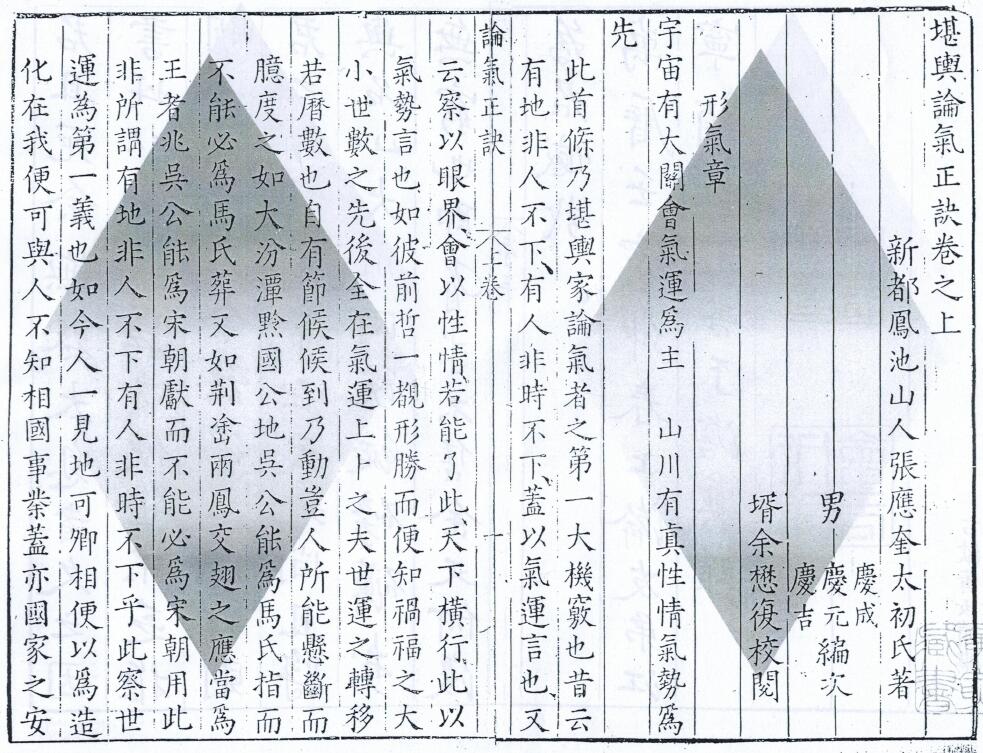 堪輿論氣正訣卷之上
新都鳳池山人張應奎太初氏著
慶成
男慶元編次
慶吉
壻余懋復校閱
形氣章
宇宙有大關會氣運爲主　山川有真性情氣勢爲
先
此首條乃堪輿家論氣者之第一大機竅也昔云
有地非人不下、有人非時不下、蓋以氣運言也、又
論氣正訣　上卷　一
云察以眼界、會以性情、若能了此、天下橫行、此以
氣勢言也、如彼前哲一覩形勝而便知禍福之大
小世數之先後全在氣運上卜之夫世運之轉移
若曆數也自有節候候到乃動豈人所能懸斷而
臆度之如大汾潭黔國公地吳公能爲馬氏指而
不能必爲馬氏葬又如荆崙兩鳳交翅之應當爲
王者兆吳公能爲宋朝獻而不能必爲宋朝用此
非所謂有地非人不下有人非時不下乎此察世
運為第一義也如今人一見地可卿相便以爲造
化在我便可與人不知相國事業蓋亦國家之安